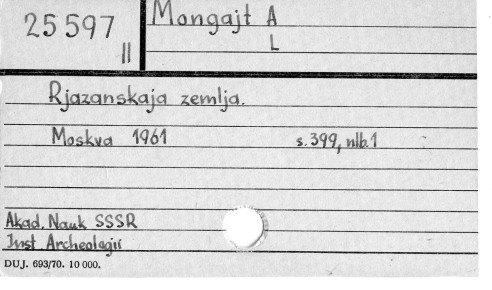 25 597
II
Mongajt A
L
Rjazanskaja zemlja.
Moskva 1961 s. 399, nlb. 1
Akad. Nauk SSSR
Inst Archeologii
DUJ. 693/70. 10 000.